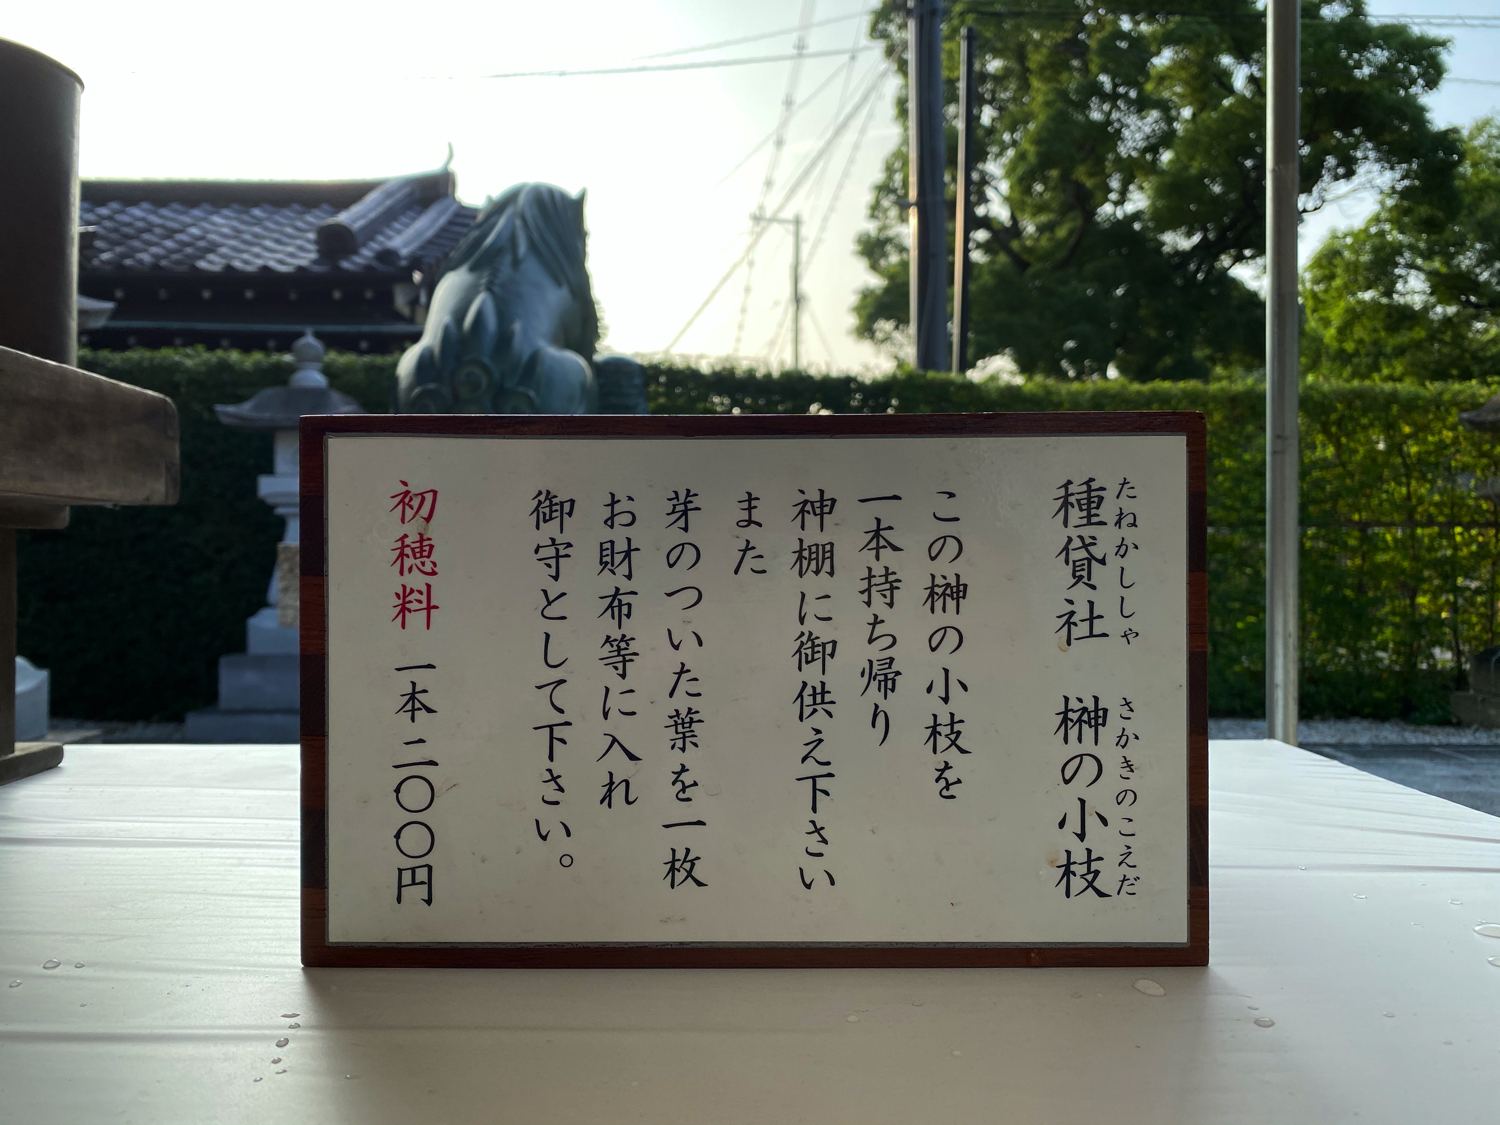 種貸社　榊の小枝
たねかししゃ　さかきのこえだ
この榊の小枝を
一本持ち帰り
神棚に御供え下さい
また
芽のついた葉を一枚
お財布等に入れ
御守として下さい。
初穂料　一本二〇〇円